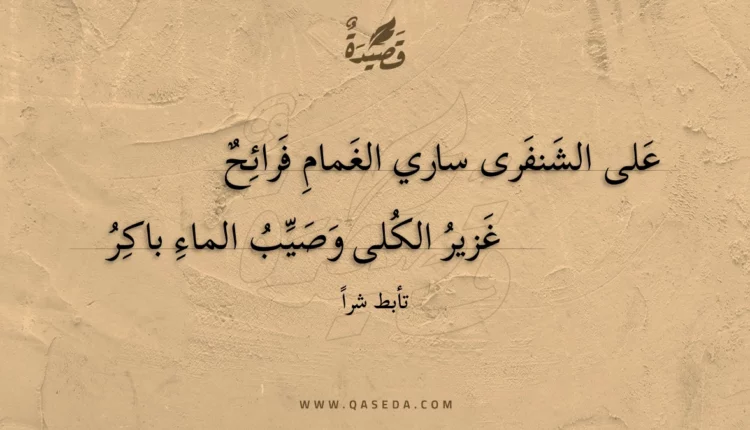 قَصِيْدَةٌ
عَلى الشَنفَرى ساري الغَمامِ فَرائِحٌ
غَزيرُ الكُلى وَصَيِّبُ الماءِ باكِرُ
تأبط شراً
WWW.QASEDA.COM